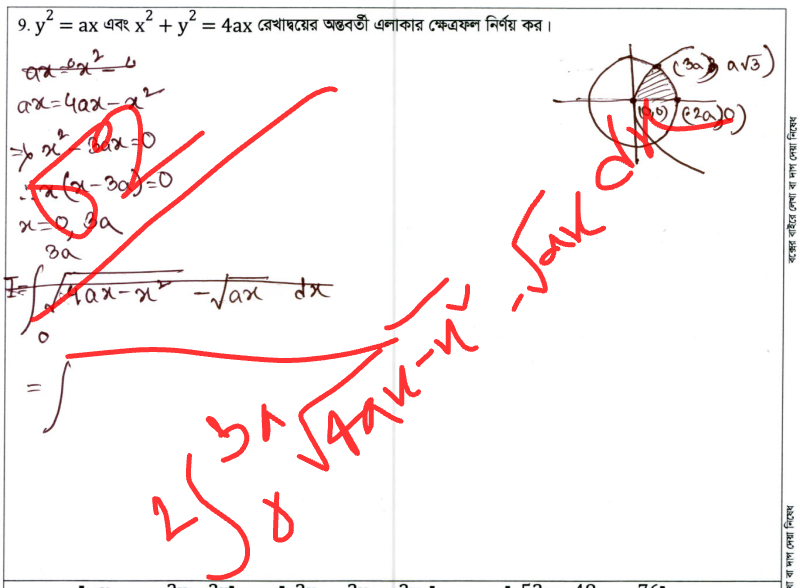 9. y² = ax এবং x² + y² = 4ax রেখাদ্বয়ের অন্তবর্তী এলাকার ক্ষেত্রফল নির্ণয় কর।
ax = x²
ax = 4ax − x²
⇒ x² − 3ax = 0
∴ x(x − 3a) = 0
x = 0, 3a
I = ∫₀³ᵃ √(4ax − x²) − √(ax) dx
= ∫
(3a, a√3)
(0,0)
(2a, 0)
2∫ √(4ax − x²) − √ax dx
বক্সের বাইরে লেখা বা দাগ দেয়া নিষেধ
বা দাগ দেয়া নিষেধ